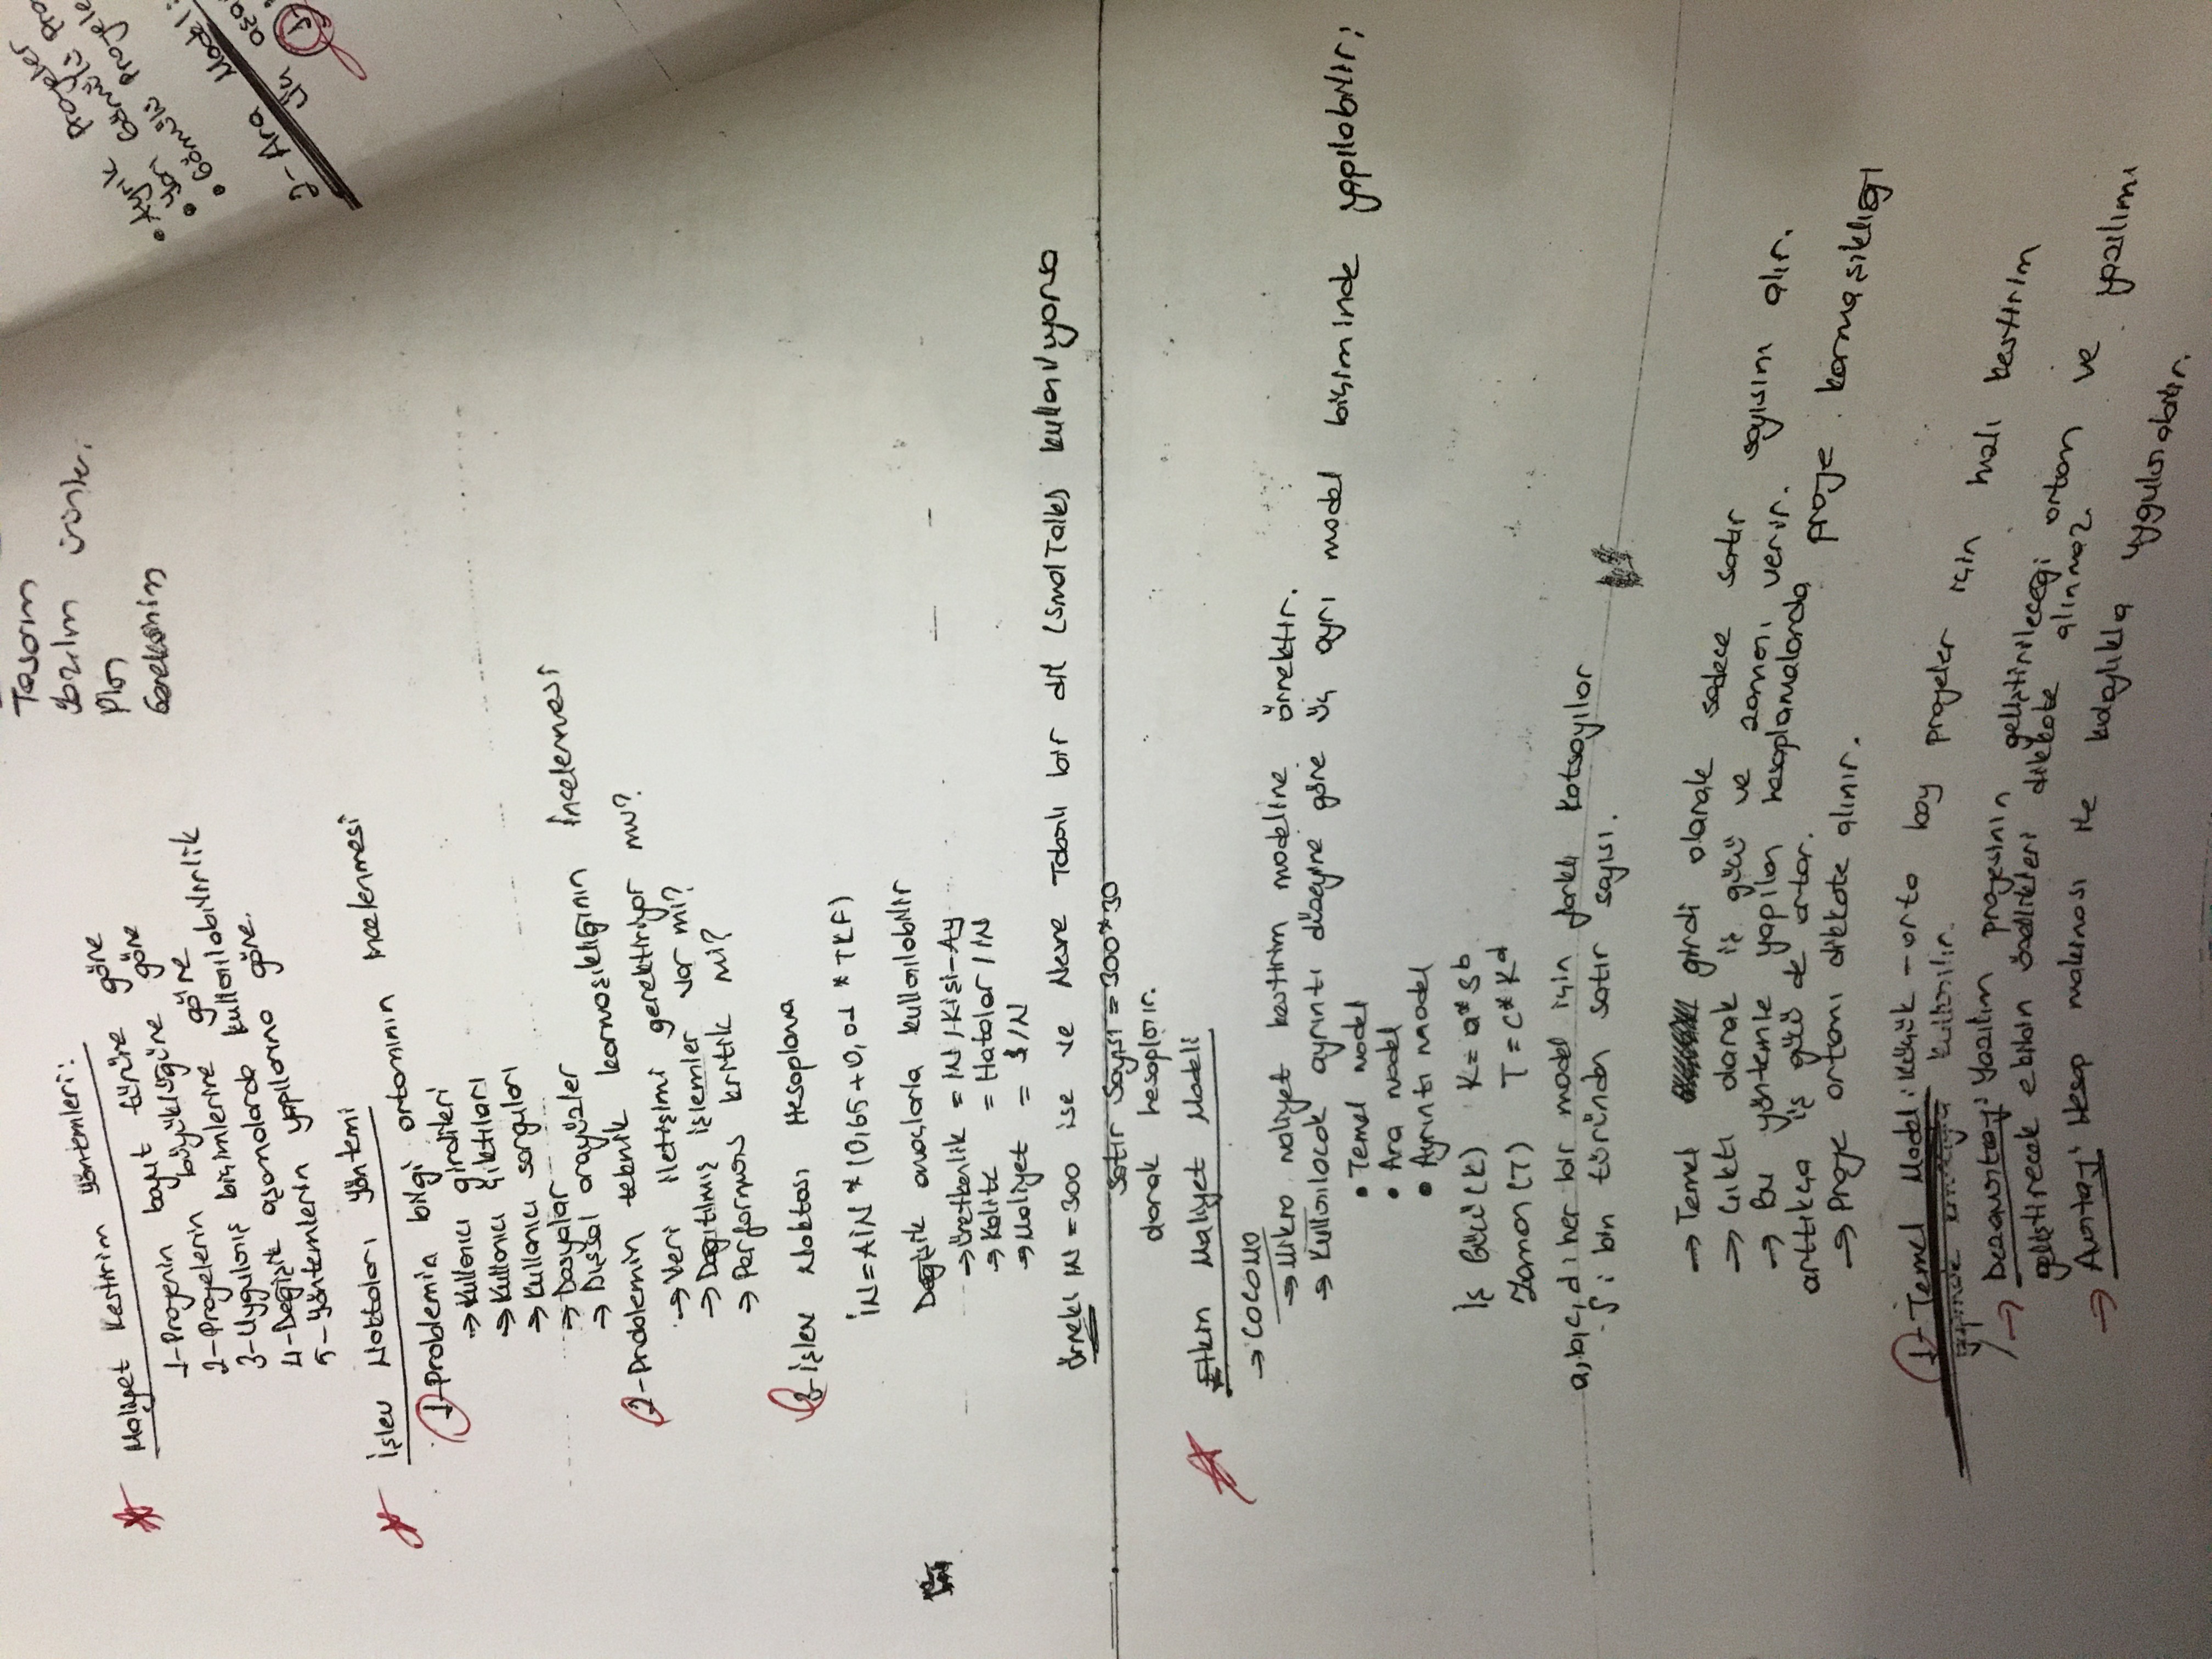 Tasarım
Yazılım ürünleri
Plan
Gereksinim
Maliyet Kestirim Yöntemleri:
1-Projenin boyut türüne göre
2-Projelerin büyüklüğüne göre
3-Uygulanış biçimlerine göre
4-Değişik aşamalarda kullanılabilirlik
5-Yöntemlerin yapılarına göre.
İşlev Noktaları Yöntemi
1-Problemin bilgi ortamının incelenmesi
→Kullanıcı girdileri
→Kullanıcı çıktıları
→Kullanıcı sorguları
→Dosyalar
→Dışsal arayüzler
2-Problemin teknik karmaşıklığının incelenmesi
→Veri iletişimi gerektiriyor mu?
→Dağıtılmış işlemler var mı?
→Performans kritik mi?
3-İşlev Noktası Hesaplama
İN=AİN*(0,65+0,01*TKF)
Değişik amaçlarla kullanılabilir
→Üretkenlik = İN/Kişi-Ay
→Kalite = Hatalar/İN
→Maliyet = $/İN
Örnek: İN=300 ise ve Nesne Tabanlı bir dil (SmalTalk) kullanılıyorsa
Satır Sayısı=300*30
olarak hesaplanır.
Etkin Maliyet Modeli
→COCOMO
→Mikro maliyet kestirim modeline örnektir.
→Kullanılacak ayrıntı düzeyine göre üç ayrı model biçiminde yapılabilir;
• Temel model
• Ara model
• Ayrıntı model
İş Gücü(K) K=a*S^b
Zaman(T) T=c*K^d
a,b,c,d: her bir model için farklı katsayılar
S: bin türünden satır sayısı.
→Temel girdi olarak sadece satır sayısını alır.
→Çıktı olarak iş gücü ve zamanı verir.
→Bu yöntemle yapılan hesaplamalarda proje karmaşıklığı
arttıkça iş gücü de artar.
→Proje ortamı dikkate alınır.
1-Temel Model: Küçük-orta boy projeler için hızlı kestirim
kullanılır.
→Dezavantaj: Yazılım projesinin geliştirileceği ortam ve yazılımı
geliştirecek ekibin özellikleri dikkate alınmaz.
→Avantaj: Hesap makinası ile kolaylıkla uygulanabilir.
• Ayrık Projeler
• Yarı Gömülü
• Gömülü
2-Ara Model:
üç
1-